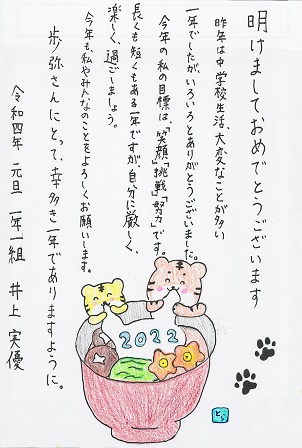 明けましておめでとうございます
昨年は中学校生活、大変なことが多い
一年でしたが、いろいろとありがとうございました。
今年の私の目標は、「笑顔」「挑戦」「努力」です。
長くも短くもある一年ですが、自分に厳しく、
楽しく、過ごしましょう。
今年も私やみんなのことをよろしくお願いします。
歩弥さんにとって、幸多き一年でありますように。
令和四年 元旦 一年一組 井上 実優
2022
とら